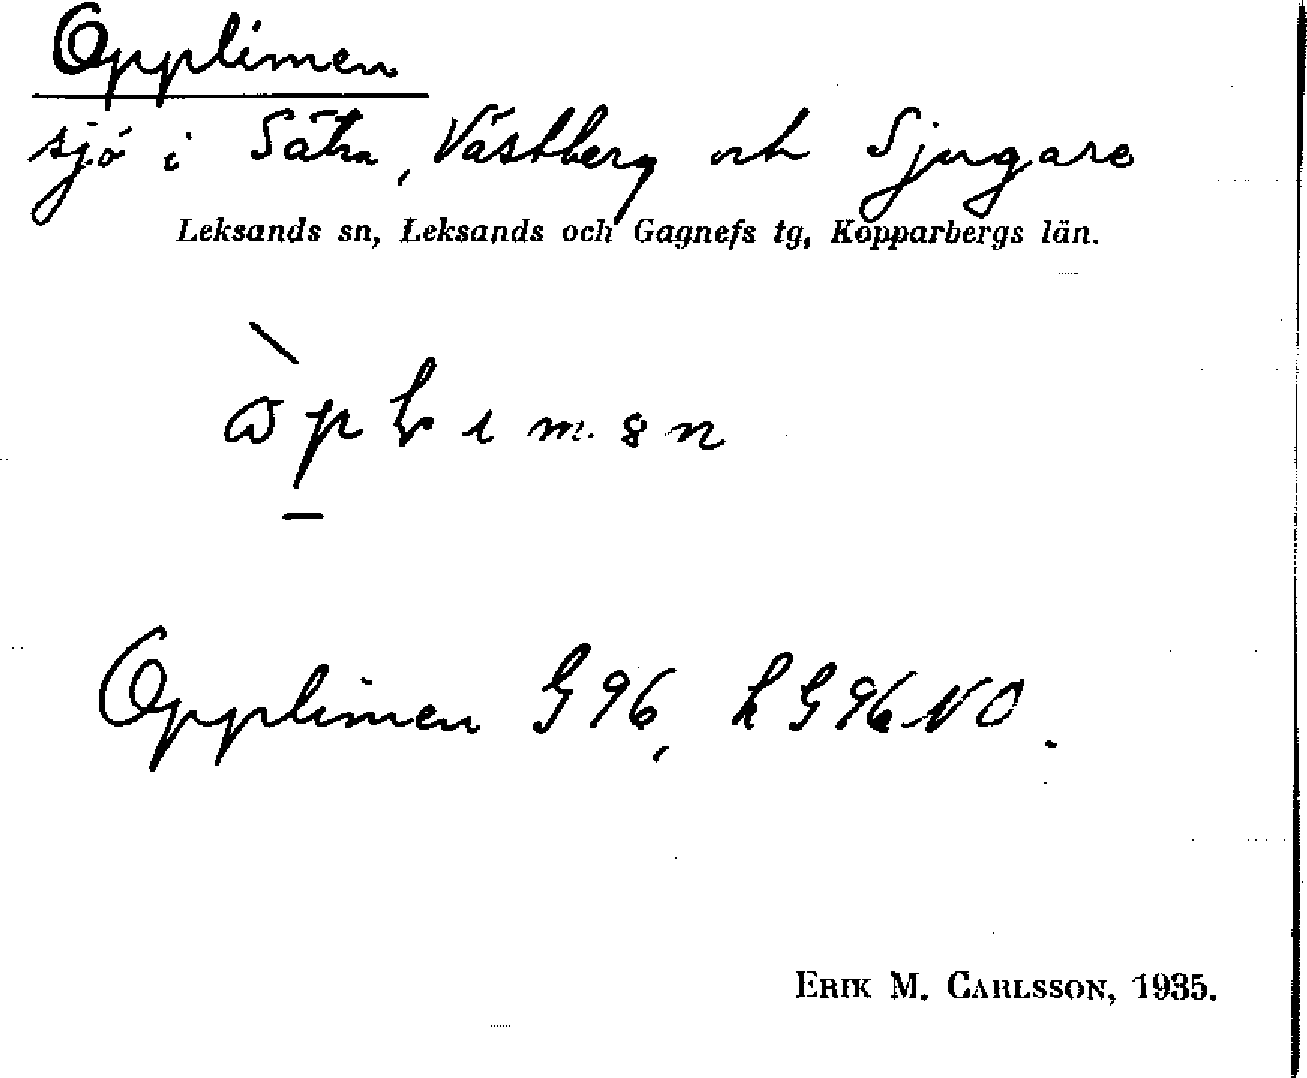 Opplimen
sjö i Sätra, Västberg och Sjugare
Leksands sn, Leksands och Gagnefs tg, Kopparbergs län.
Opplimen G 96, LG 96 NO.
ERIK M. CARLSSON, 1935.